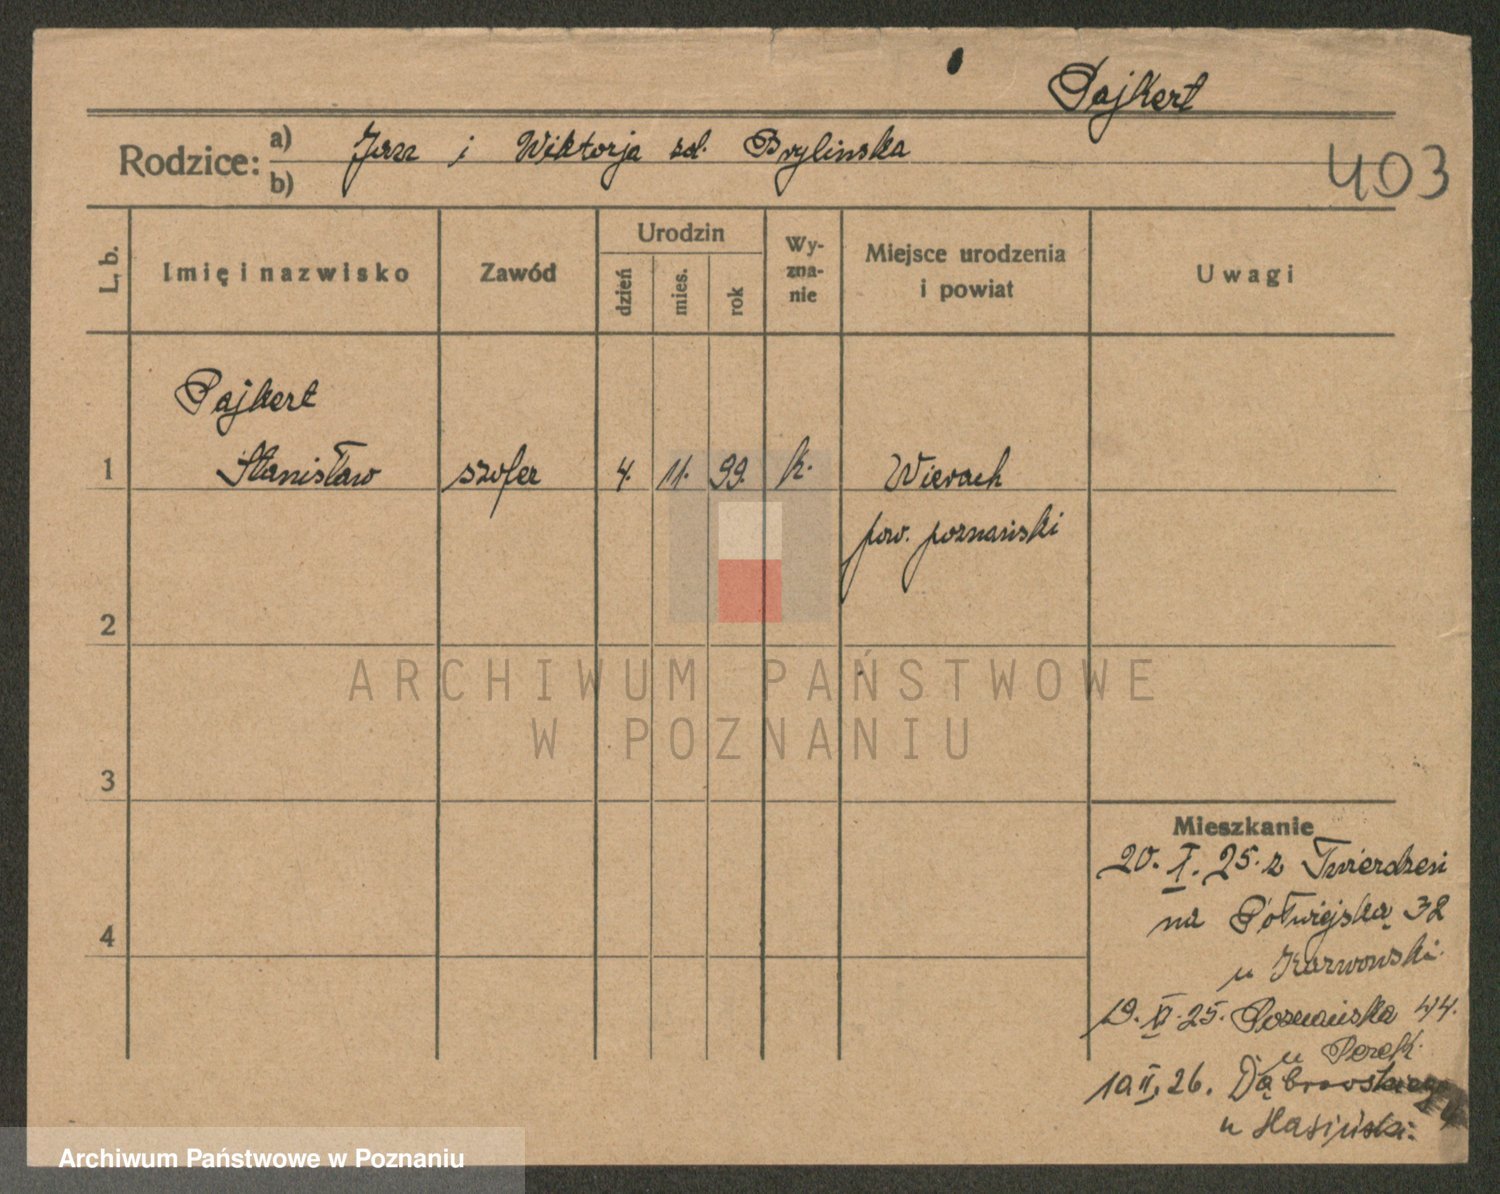 Pajkert
Rodzice: a) Jerzy i Wiktorja zd. Brylinska
b)
403
L. b.
Imię i nazwisko
Zawód
Urodzin
dzień
mies.
rok
Wy-
zna-
nie
Miejsce urodzenia
i powiat
Uwagi
Pajkert
1 Stanisław szofer 4. 11. 99. k. Wierach
pow. poznański
2
ARCHIWUM PAŃSTWOWE
W POZNANIU
3
Mieszkanie
20. I. 25. z Twierdzeni
na Półwiejską 32
4
u Karwowski.
19. 25. Poznańska 44.
u
10 II. 26. Dąbrowskiego
u
Archiwum Państwowe w Poznaniu